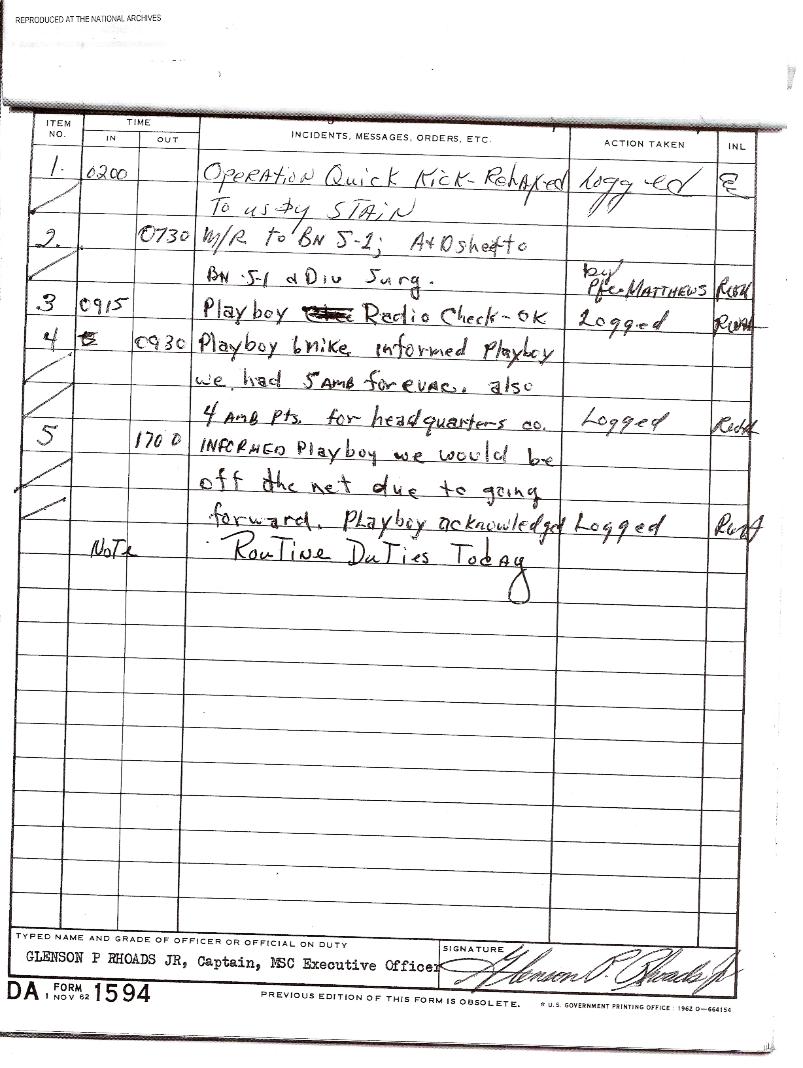 REPRODUCED AT THE NATIONAL ARCHIVES
ITEM NO. TIME IN OUT INCIDENTS, MESSAGES, ORDERS, ETC. ACTION TAKEN INL
1. 0200 OPERATION QUICK KICK - Relaxed Logged
To us by STAIN
2. 0730 M/R to BN S-1; A+D sheet to
BN S-1 & Div Surg. by Pfc. MATTHEWS
3 0915 Playboy Radio Check - OK Logged
4 0930 Playboy 6 mike informed Playboy
we had 5 AMB for evac. also
4 AMB Pts. for headquarters co. Logged
5 1700 INFORMED Playboy we would be
off the net due to going
forward. Playboy acknowledged Logged
NOTE Routine Duties Today
TYPED NAME AND GRADE OF OFFICER OR OFFICIAL ON DUTY
GLENSON P RHOADS JR, Captain, MSC Executive Officer
SIGNATURE Glenson P. Rhoads Jr
DA FORM 1 NOV 62 1594 PREVIOUS EDITION OF THIS FORM IS OBSOLETE. * U.S. GOVERNMENT PRINTING OFFICE: 1962 O-664154